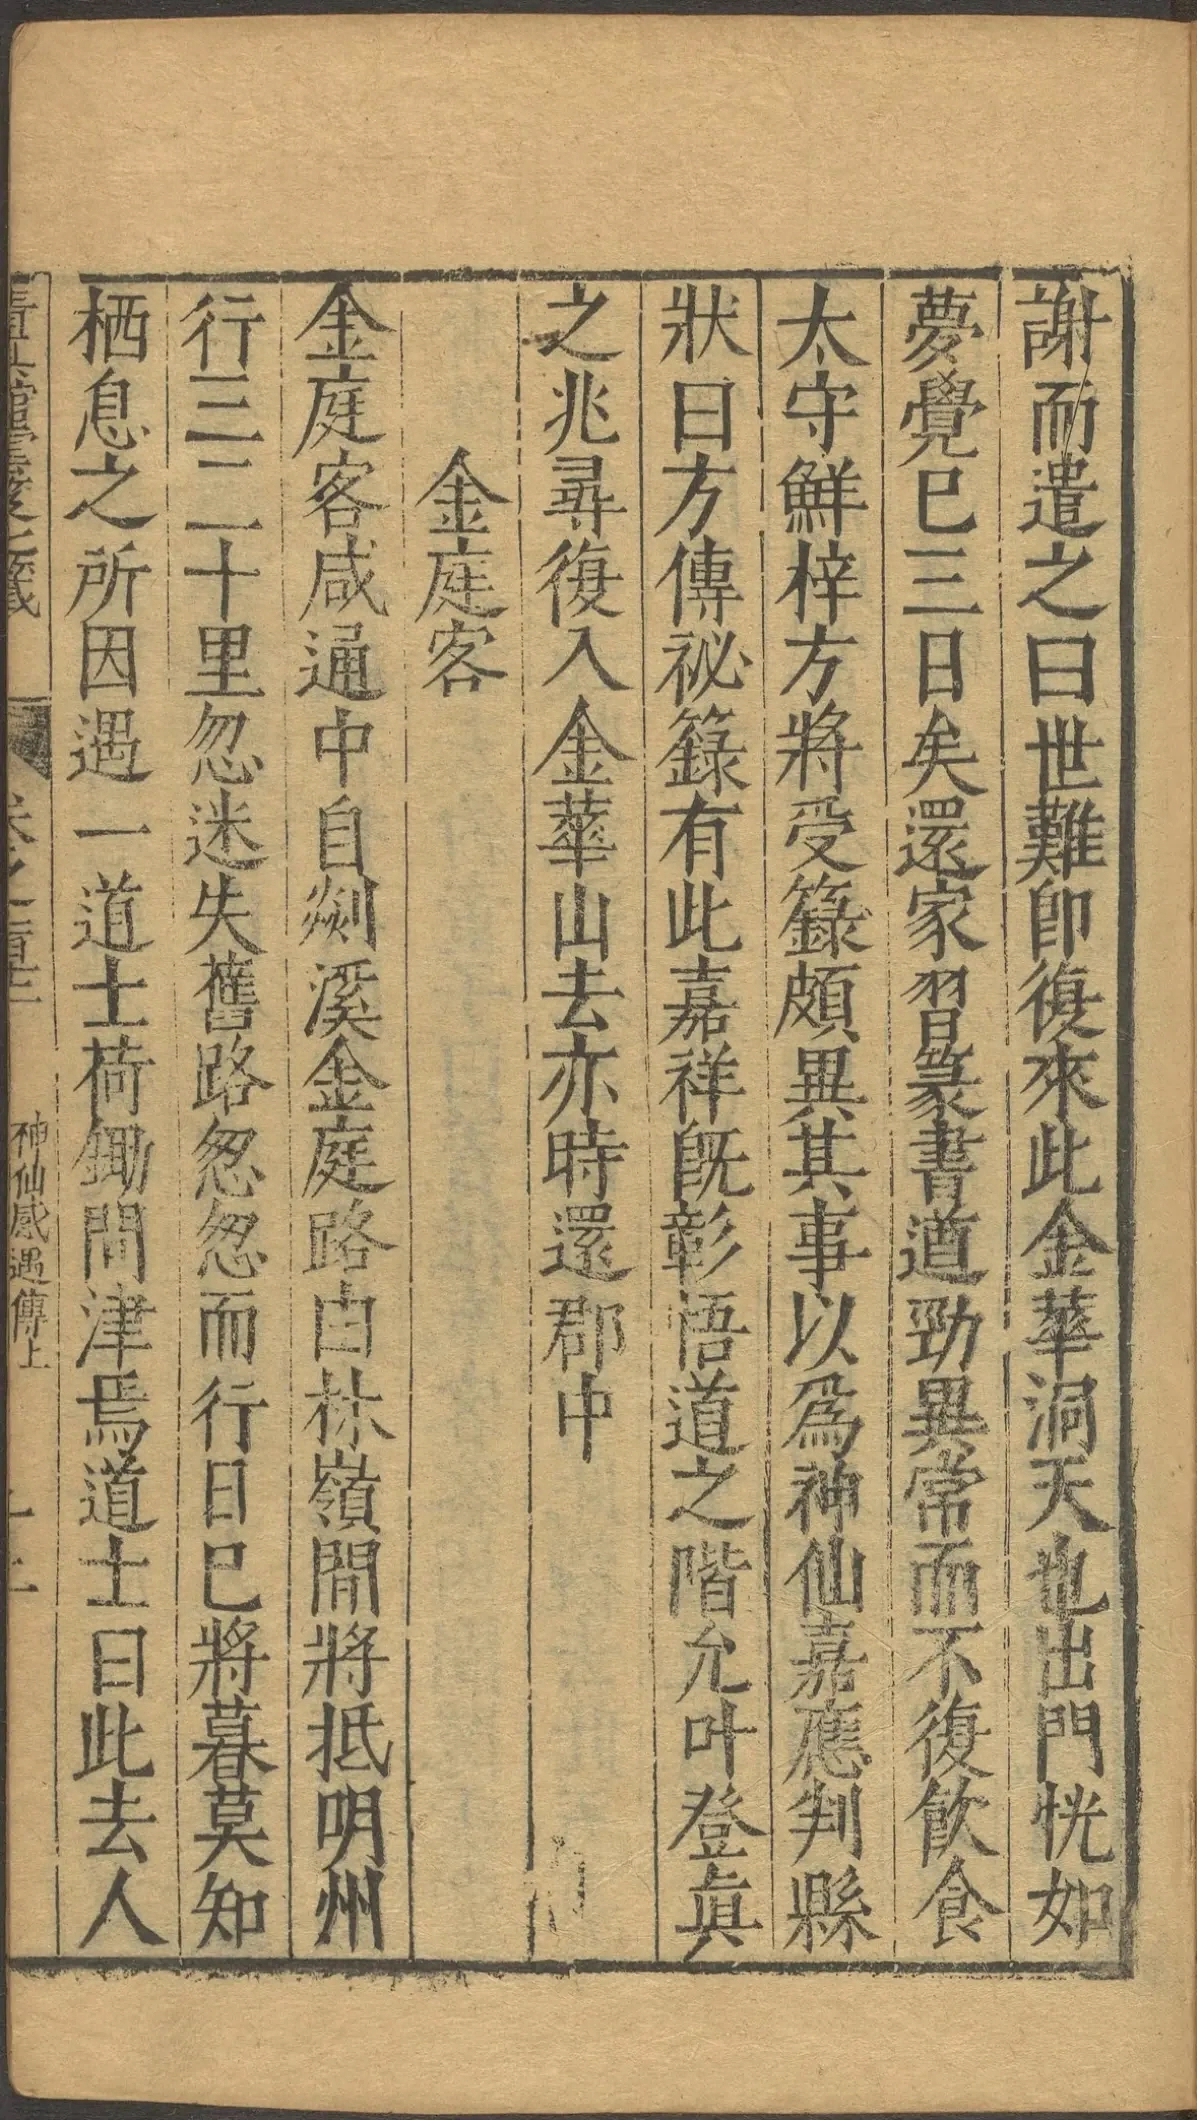 謝而遣之曰世難即復來此金華洞天也出門恍如
夢覺巳三日矣還家習篆書遒勁異常而不復飮食
太守鮮梓方將受籙頗異其事以爲神仙嘉應判縣
狀曰方傳祕籙有此嘉祥旣彰悟道之階允叶登眞
之兆尋復入金華山去亦時還郡中
金庭客
金庭客咸通中自剡溪金庭路由林嶺間將抵明州
行三二十里忽迷失舊路忽忽而行日巳將暮莫知
栖息之所因遇一道士荷鋤問津焉道士曰此去人
神仙感遇傳上